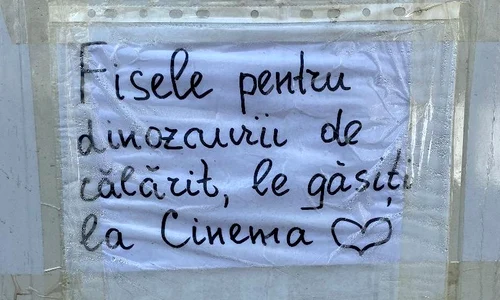 Fisele pentru
dinozaurii de
călărit, le găsiți
la Cinema ♡